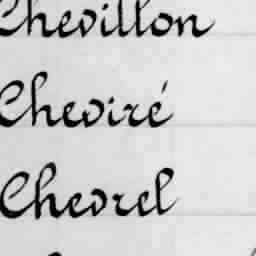 Chevillon
Cheviré
Chevrel